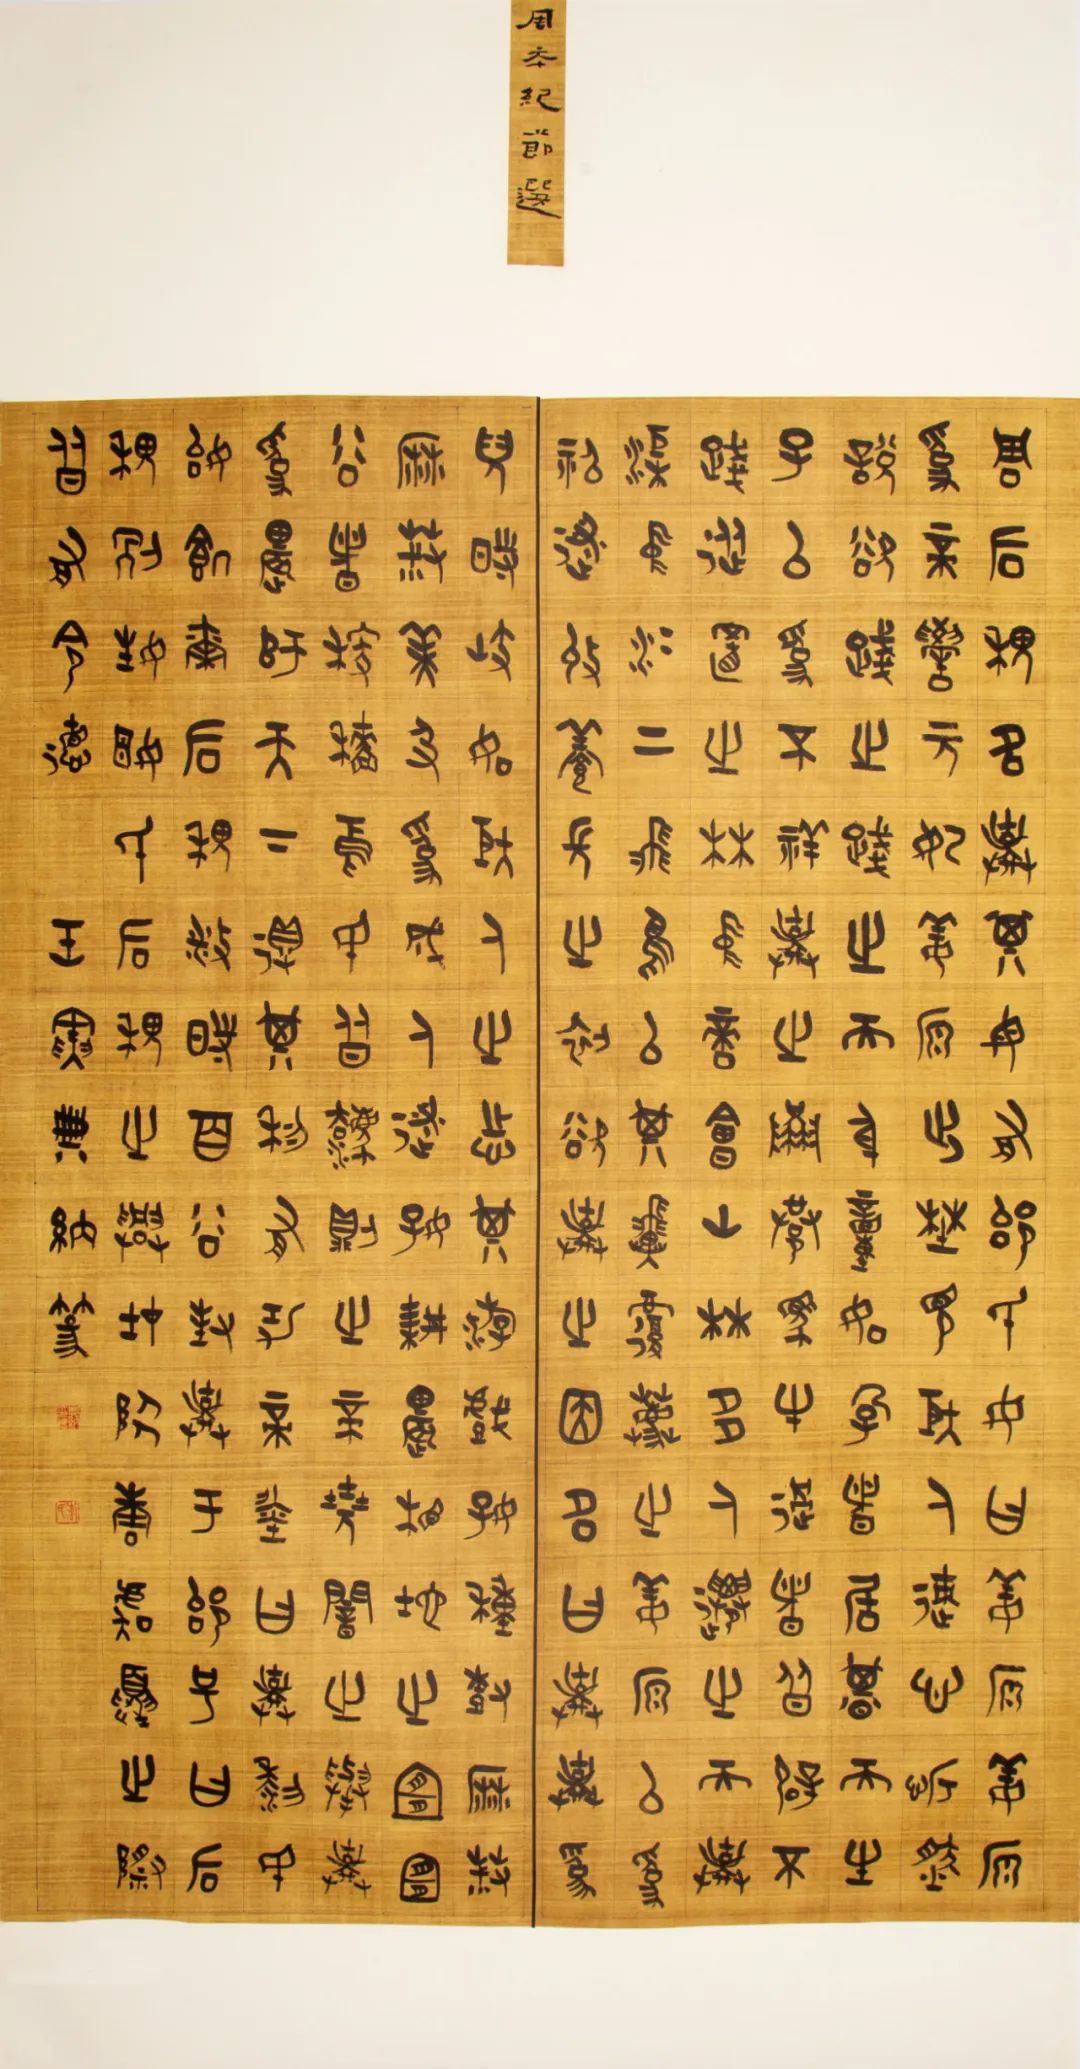 周本紀節選
周后稷名棄其母有邰氏女曰姜原姜原
為帝嚳元妃姜原出野見巨人迹心忻然
說欲踐之踐之而身動如孕者居期而生
子以為不祥棄之隘巷馬牛過者皆辟不
踐徙置之林中適會山林多人遷之而棄
渠中冰上飛鳥以其翼覆薦之姜原以為
神遂收養長之初欲棄之因名曰棄棄為
兒時屹如巨人之志其游戲好種樹麻菽
麻菽美及為成人遂好耕農相地之宜宜
穀者稼穡焉民皆法則之帝堯聞之舉棄
為農師天下得其利有功帝舜曰棄黎民
始飢爾后稷播時百穀封棄于邰號曰后
稷別姓姬氏后稷之興在陶唐虞夏之際
皆有令德 王寶典納篆